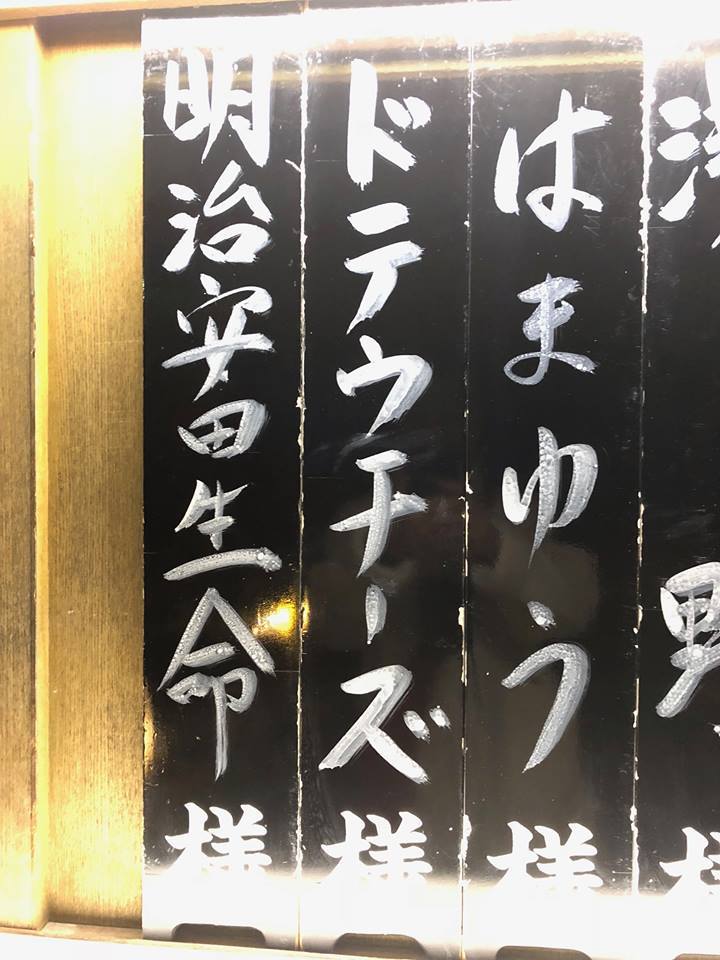 野 様
はまゆう 様
ドテウチーズ 様
明治安田生命 様